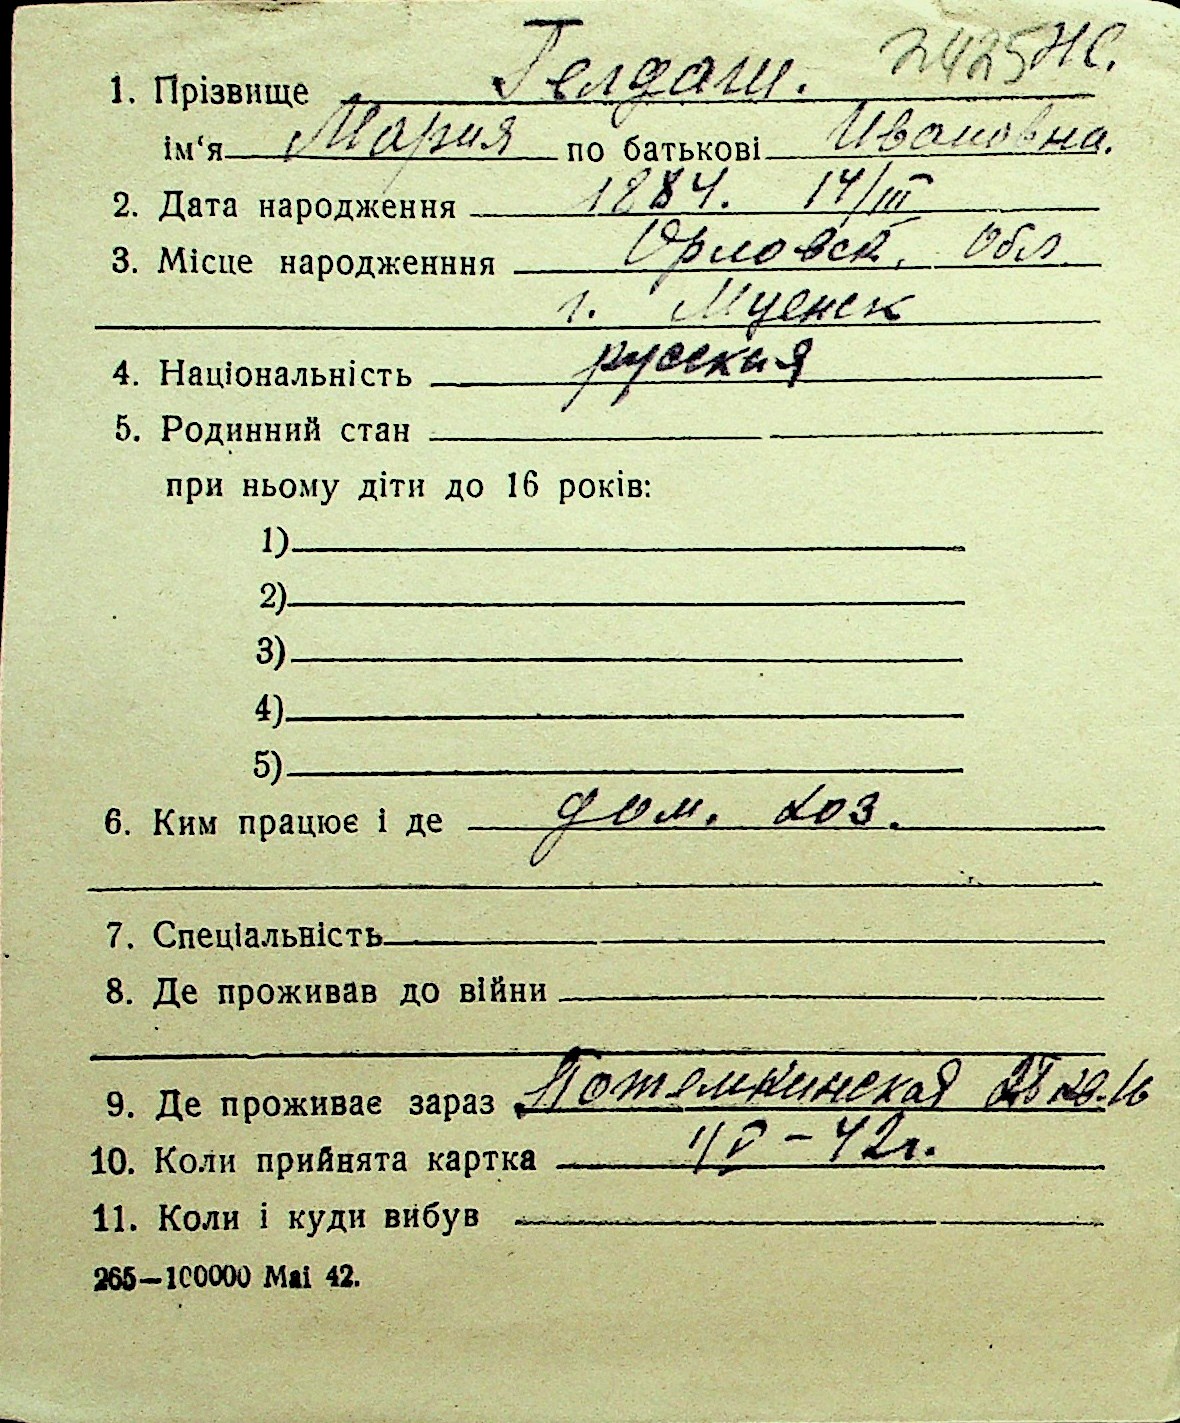 2425 НС.
1. Прізвище Гелдаш.
ім‘я Мария по батькові Ивановна.
2. Дата народження 1884. 14/III
3. Місце народженння Орловск. Обл.
г. Мценск
4. Національність русская
5. Родинний стан
при ньому діти до 16 років:
1)
2)
3)
4)
5)
6. Ким працює і де дом. хоз.
7. Спеціальність
8. Де проживав до війни
9. Де проживає зараз Потемкинская
10. Коли прийнята картка - 42 г.
11. Коли і куди вибув
265—100000 Mai 42.